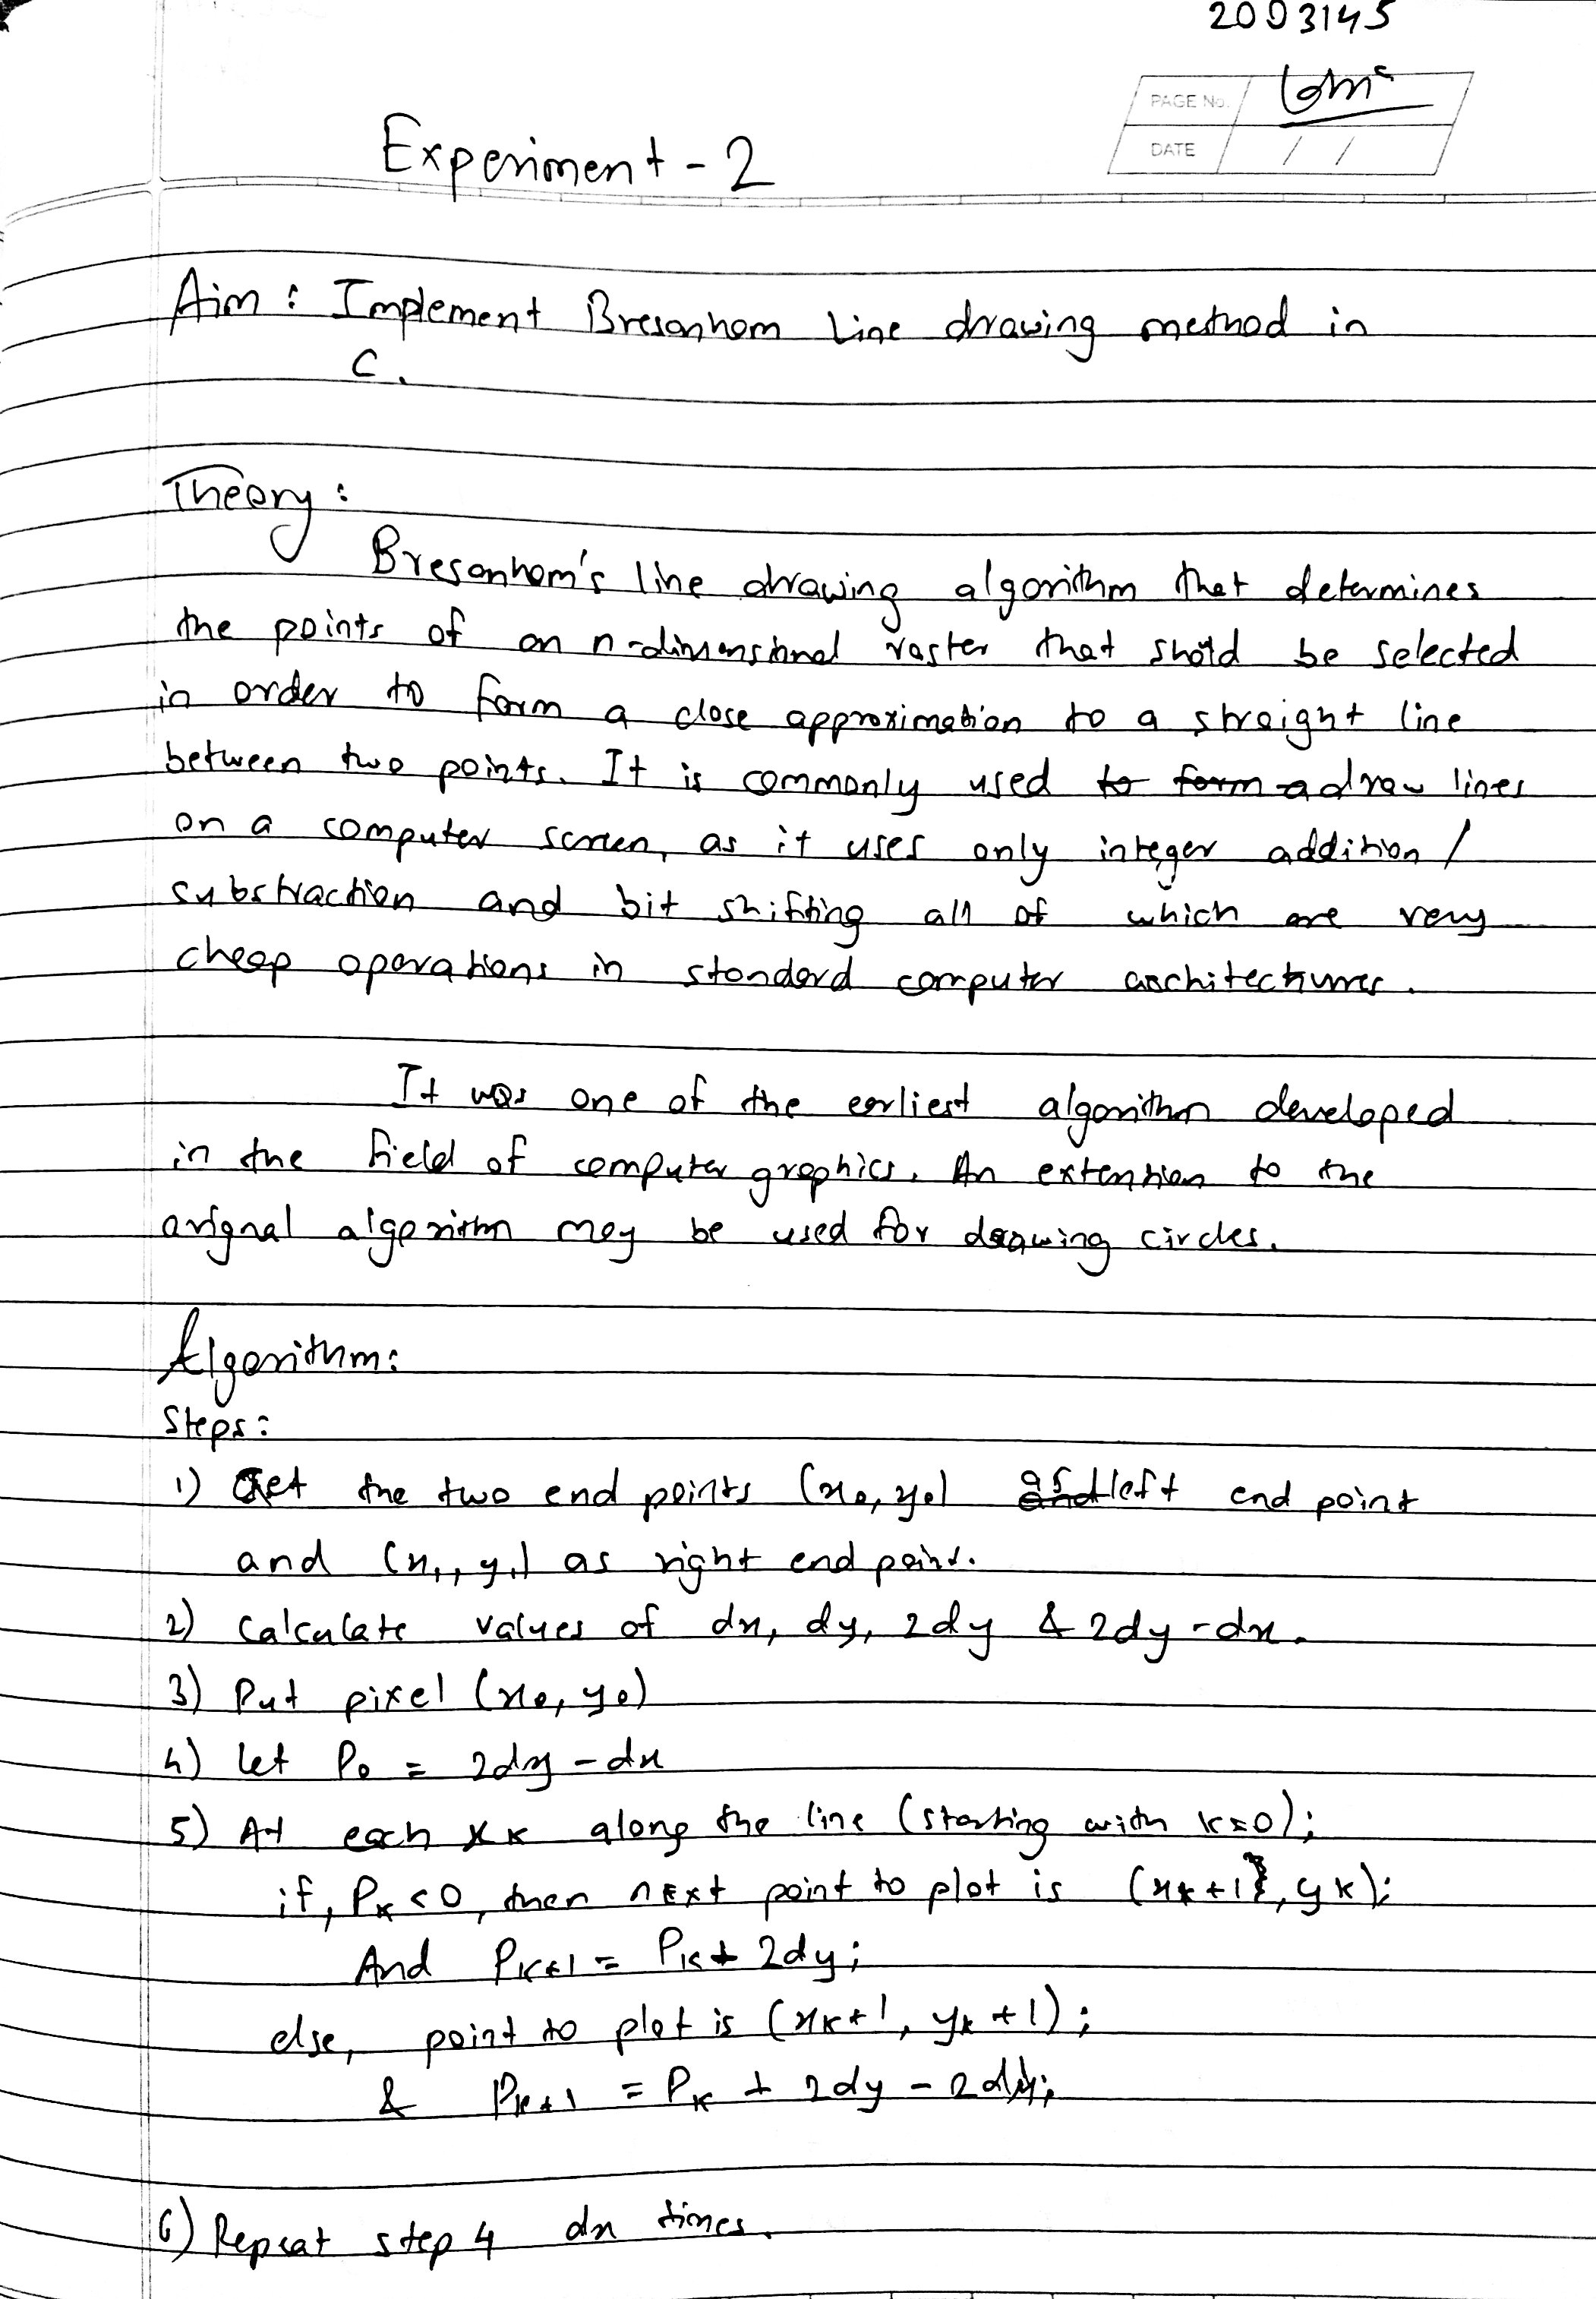 2003145
PAGE No.
DATE / /
Experiment - 2
Aim : Implement Bresenham Line drawing method in
C.
Theory :
Bresenham's line drawing algorithm that determines
the points of an n-dimensional raster that should be selected
in order to form a close approximation to a straight line
between two points. It is commonly used to form a draw lines
on a computer screen, as it uses only integer addition /
substraction and bit shifting all of which are very
cheap operations in standard computer architectures.
It was one of the earliest algorithm developed
in the field of computer graphics. An extention to the
orignal algorithm may be used for drawing circles.
Algorithm:
Steps:
1) Get the two end points (x0, y0) as left end point
and (x1, y1) as right end point.
2) Calculate values of dx, dy, 2dy & 2dy - dx.
3) Put pixel (x0, y0)
4) let P0 = 2dy - dx
5) At each xK along the line (starting with K=0);
if, PK < 0, then next point to plot is (xK+1, yK);
And PK+1 = PK + 2dy;
else, point to plot is (xK+1, yK+1);
& PK+1 = PK + 2dy - 2dx;
6) Repeat step 4 dx times.